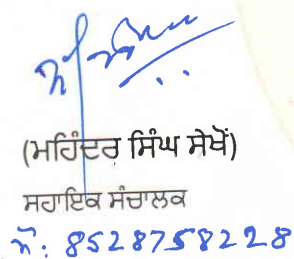 (ਮਹਿੰਦਰ ਸਿੰਘ ਸੇਖੋਂ)
ਸਹਾਇਕ ਸੰਚਾਲਕ
ਮੋ: 8528758228